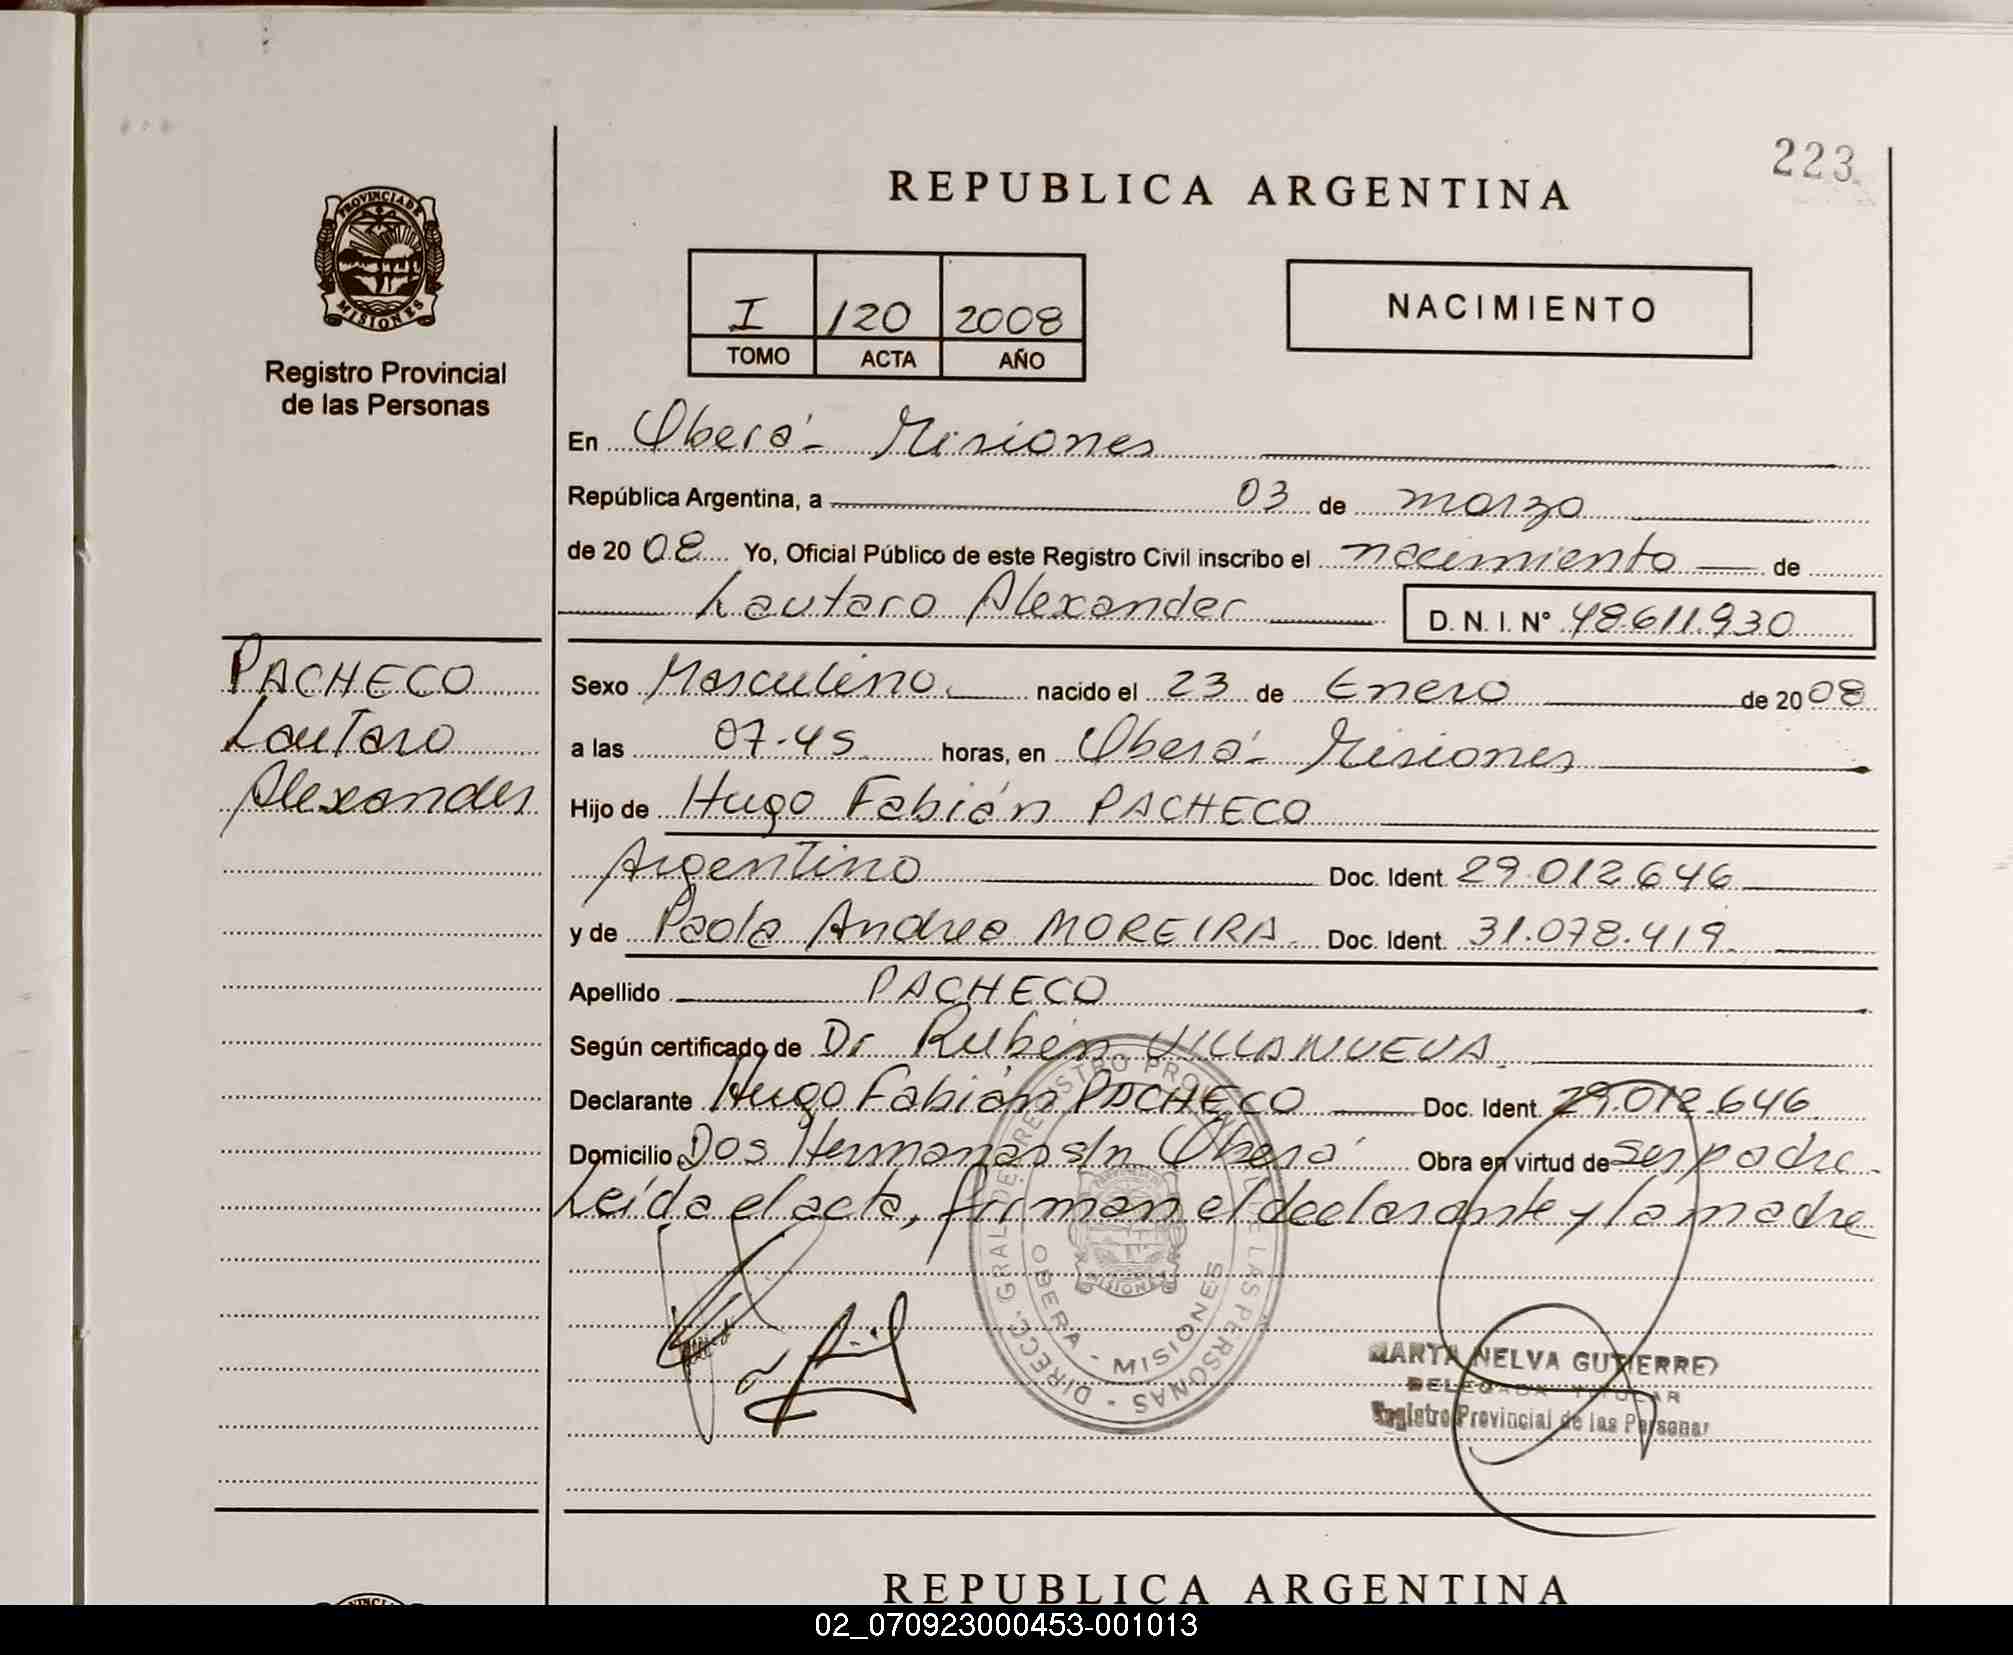 223
REPUBLICA ARGENTINA
PROVINCIA DE
MISIONES
Registro Provincial
de las Personas
I 120 2008
TOMO ACTA AÑO
NACIMIENTO
En Oberá - Misiones
República Argentina, a 03 de marzo
de 20 08 Yo, Oficial Público de este Registro Civil inscribo el nacimiento de
Lautaro Alexander D. N. I. N° 48.611.930
PACHECO
Lautaro
Alexander
Sexo Masculino nacido el 23 de Enero de 20 08
a las 07.45 horas, en Oberá - Misiones
Hijo de Hugo Fabián PACHECO
Argentino Doc. Ident. 29.012.646
y de Paola Andrea MOREIRA. Doc. Ident. 31.078.419.
Apellido PACHECO
Según certificado de Dr Rubén VILLANUEVA.
Declarante Hugo Fabián PACHECO Doc. Ident. 29.012.646
Domicilio Dos Hermanas s/n Oberá Obra en virtud de ser padre.
Leída el acta, firman el declarante y la madre
DIRECC. GRAL. DE REGISTRO PROVINCIAL DE LAS PERSONAS
OBERA - MISIONES
MARTA NELVA GUTIERREZ
DELEGADA TITULAR
Registro Provincial de las Personas
REPUBLICA ARGENTINA
02_070923000453-001013